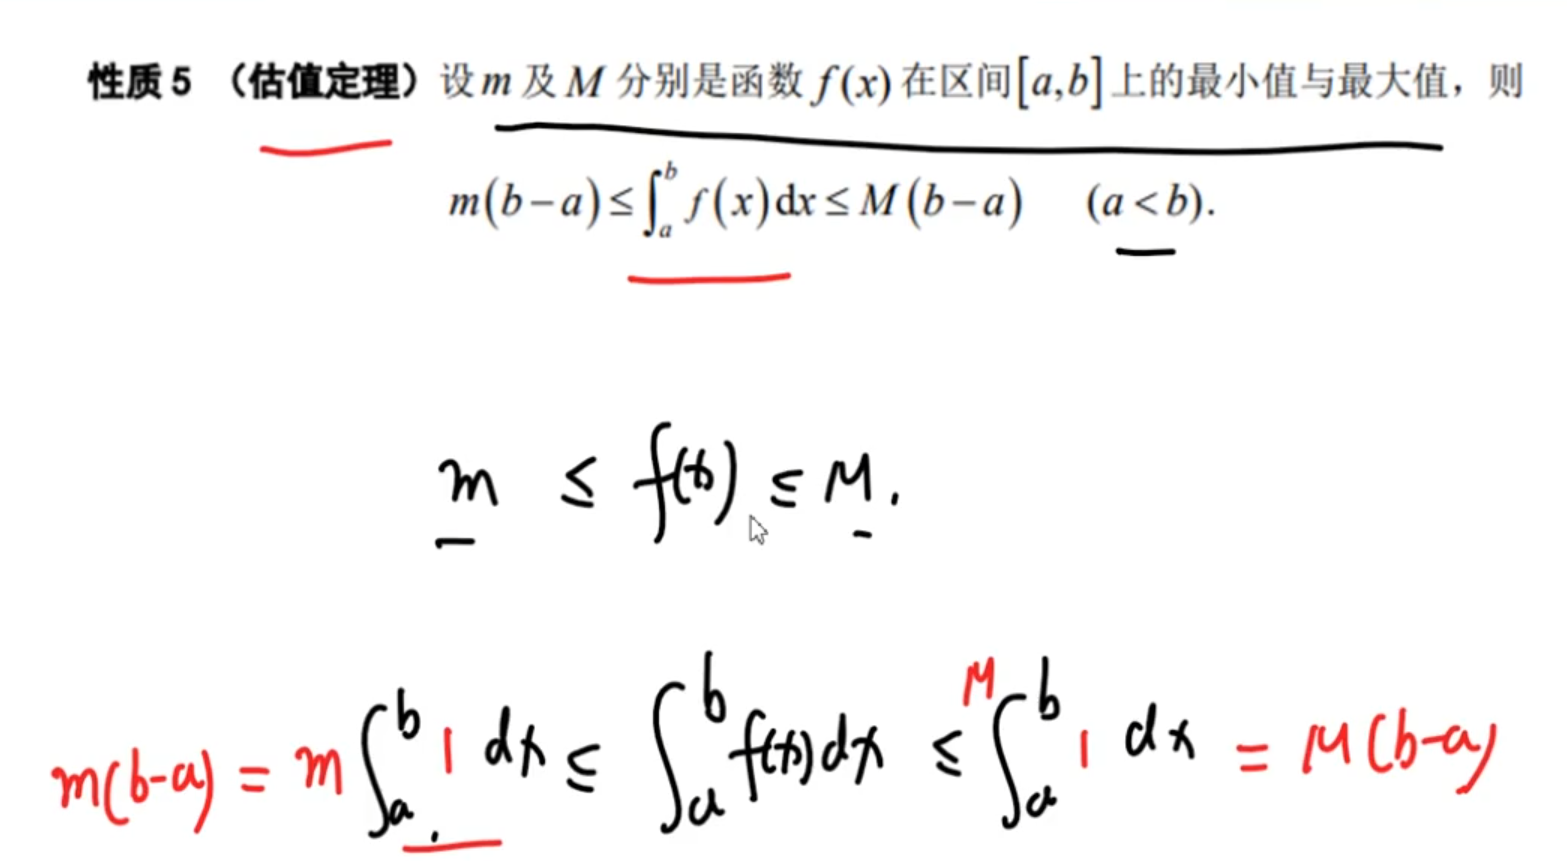 性质 5 （估值定理）设 m 及 M 分别是函数 f(x) 在区间[a,b]上的最小值与最大值，则
m(b−a)≤∫_a^b f(x)dx≤M(b−a) (a<b).
m ≤ f(x) ≤ M.
m(b-a) = m ∫_a^b 1 dx ≤ ∫_a^b f(x)dx ≤ M ∫_a^b 1 dx = M(b-a)